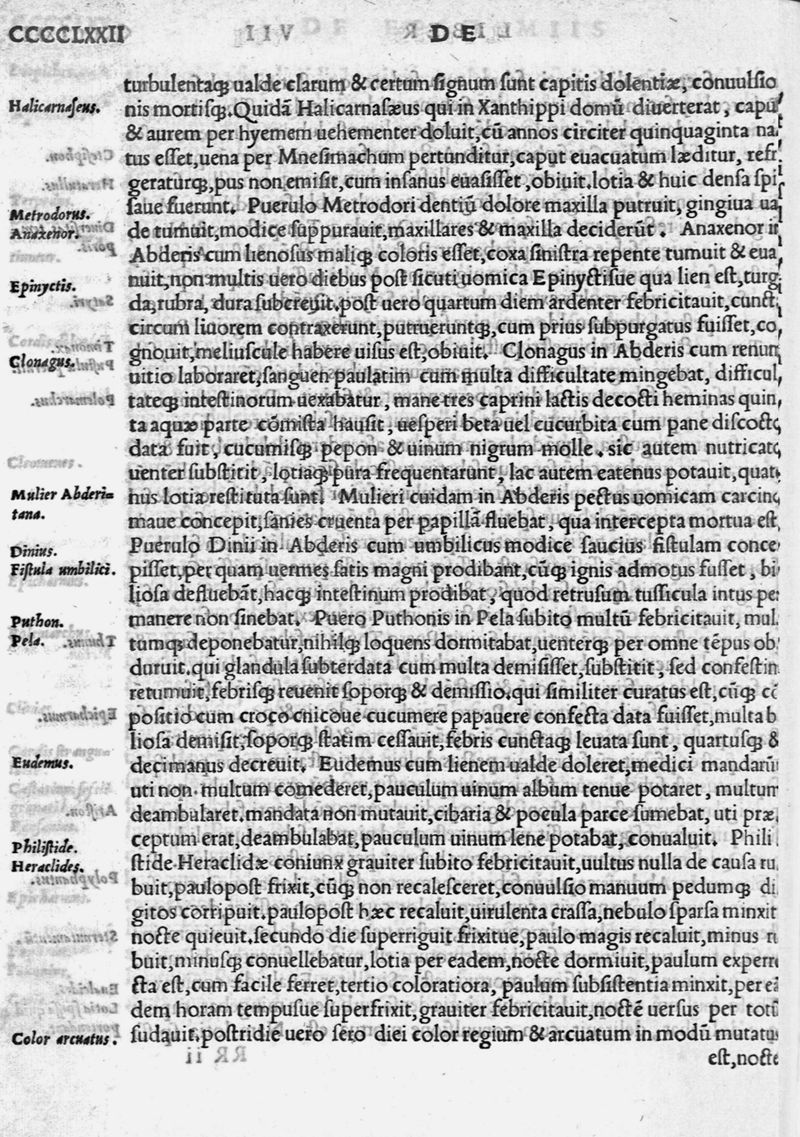 CCCCLXXII DE
turbulentaq; ualde clarum & certum signum sunt capitis dolentiæ, conuulsio
Halicarnaseus.
nis mortisq;. Quidā Halicarnasæus qui in Xanthippi domū diuerterat, caput
& aurem per hyemem uehementer doluit, cū annos circiter quinquaginta na
tus esset, uena per Mnesimachum pertunditur, caput euacuatum læditur, refri
geraturq;, pus non emisit, cum insanus euasisset, obiuit. lotia & huic densa spis
Metrodorus.
saue fuerunt. Puerulo Metrodori dentiū dolore maxilla putruit, gingiua ual
Anaxenor.
de tumuit, modice suppurauit, maxillares & maxilla deciderūt. Anaxenor in
Abderis cum lienosus maliq; coloris esset, coxa sinistra repente tumuit & eua
Epinyctis.
nuit, non multis uero diebus post sicuti uomica Epinyctisue qua lien est, turgi
da, rubra, dura subcreuit, post uero quartum diem ardenter febricitauit, cuncta
circum liuorem contraxerunt, putrueruntq;, cum prius subpurgatus fuisset, co
Clonagus.
gnouit, meliuscule habere uisus est, obiuit. Clonagus in Abderis cum renum
uitio laboraret, sanguen paulatim cum multa difficultate mingebat, difficul
tateq; intestinorum uexabatur, mane tres caprini lactis decocti heminas quin
ta aquæ parte cōmista hausit, uesperi beta uel cucurbita cum pane discocto
data fuit, cucumisq; pepon & uinum nigrum molle. sic autem nutricato
uenter substitit, lotiaq; pura frequentarunt, lac autem eatenus potauit, quate
Mulier Abderi=
tana.
nus lotia restituta sunt. Mulieri cuidam in Abderis pectus uomicam carcino
maue concepit, sanies cruenta per papillā fluebat, qua intercepta mortua est.
Dinius.
Puerulo Dinii in Abderis cum umbilicus modice saucius fistulam conce
Fistula umbilici.
pisset, per quam uermes satis magni prodibant, cūq; ignis admotus fuisset, bi
liosa defluebāt, hacq; intestinum prodibat, quod retrusum tussicula intus per
Puthon.
manere non sinebat. Puero Puthonis in Pela subito multū febricitauit, mul
Pela.
tumq; deponebatur, nihilq; loquens dormitabat, uenterq; per omne tēpus ob
duruit. qui glandula subterdata cum multa demisisset, substitit, sed confestim
retumuit, febrisq; reuenit soporq; & demissio. qui similiter curatus est, cūq; cō
positio cum croco cnicoue cucumere papauere confecta data fuisset, multa bi
liosa demisit, soporq; statim cessauit, febris cunctaq; leuata sunt, quartusq; &
Eudemus.
decimanus decreuit. Eudemus cum lienem ualde doleret, medici mandarū
uti non multum comederet, pauculum uinum album tenue potaret, multum
deambularet, mandata non mutauit, cibaria & pocula parce sumebat, uti præ
ceptum erat, deambulabat, pauculum uinum lene potabat, conualuit. Phili
Philistide.
Heraclides.
stide Heraclidæ coniunx grauiter subito febricitauit, uultus nulla de causa ru
buit, paulopost frixit, cūq; non recalesceret, conuulsio manuum pedumq; di
gitos corripuit. paulopost hæc recaluit, uirulenta crassa, nebulo sparsa minxit
nocte quieuit. secundo die superriguit frixitue, paulo magis recaluit, minus ru
buit, minusq; conuellebatur, lotia per eadem, nocte dormiuit, paulum experre
cta est, cum facile ferret, tertio coloratiora, paulum subsistentia minxit, per eā
dem horam tempusue superfrixit, grauiter febricitauit, noctē uersus per totū
Color arcuatus.
sudauit. postridie uero sero diei color regium & arcuatum in modū mutatus
est, nocte